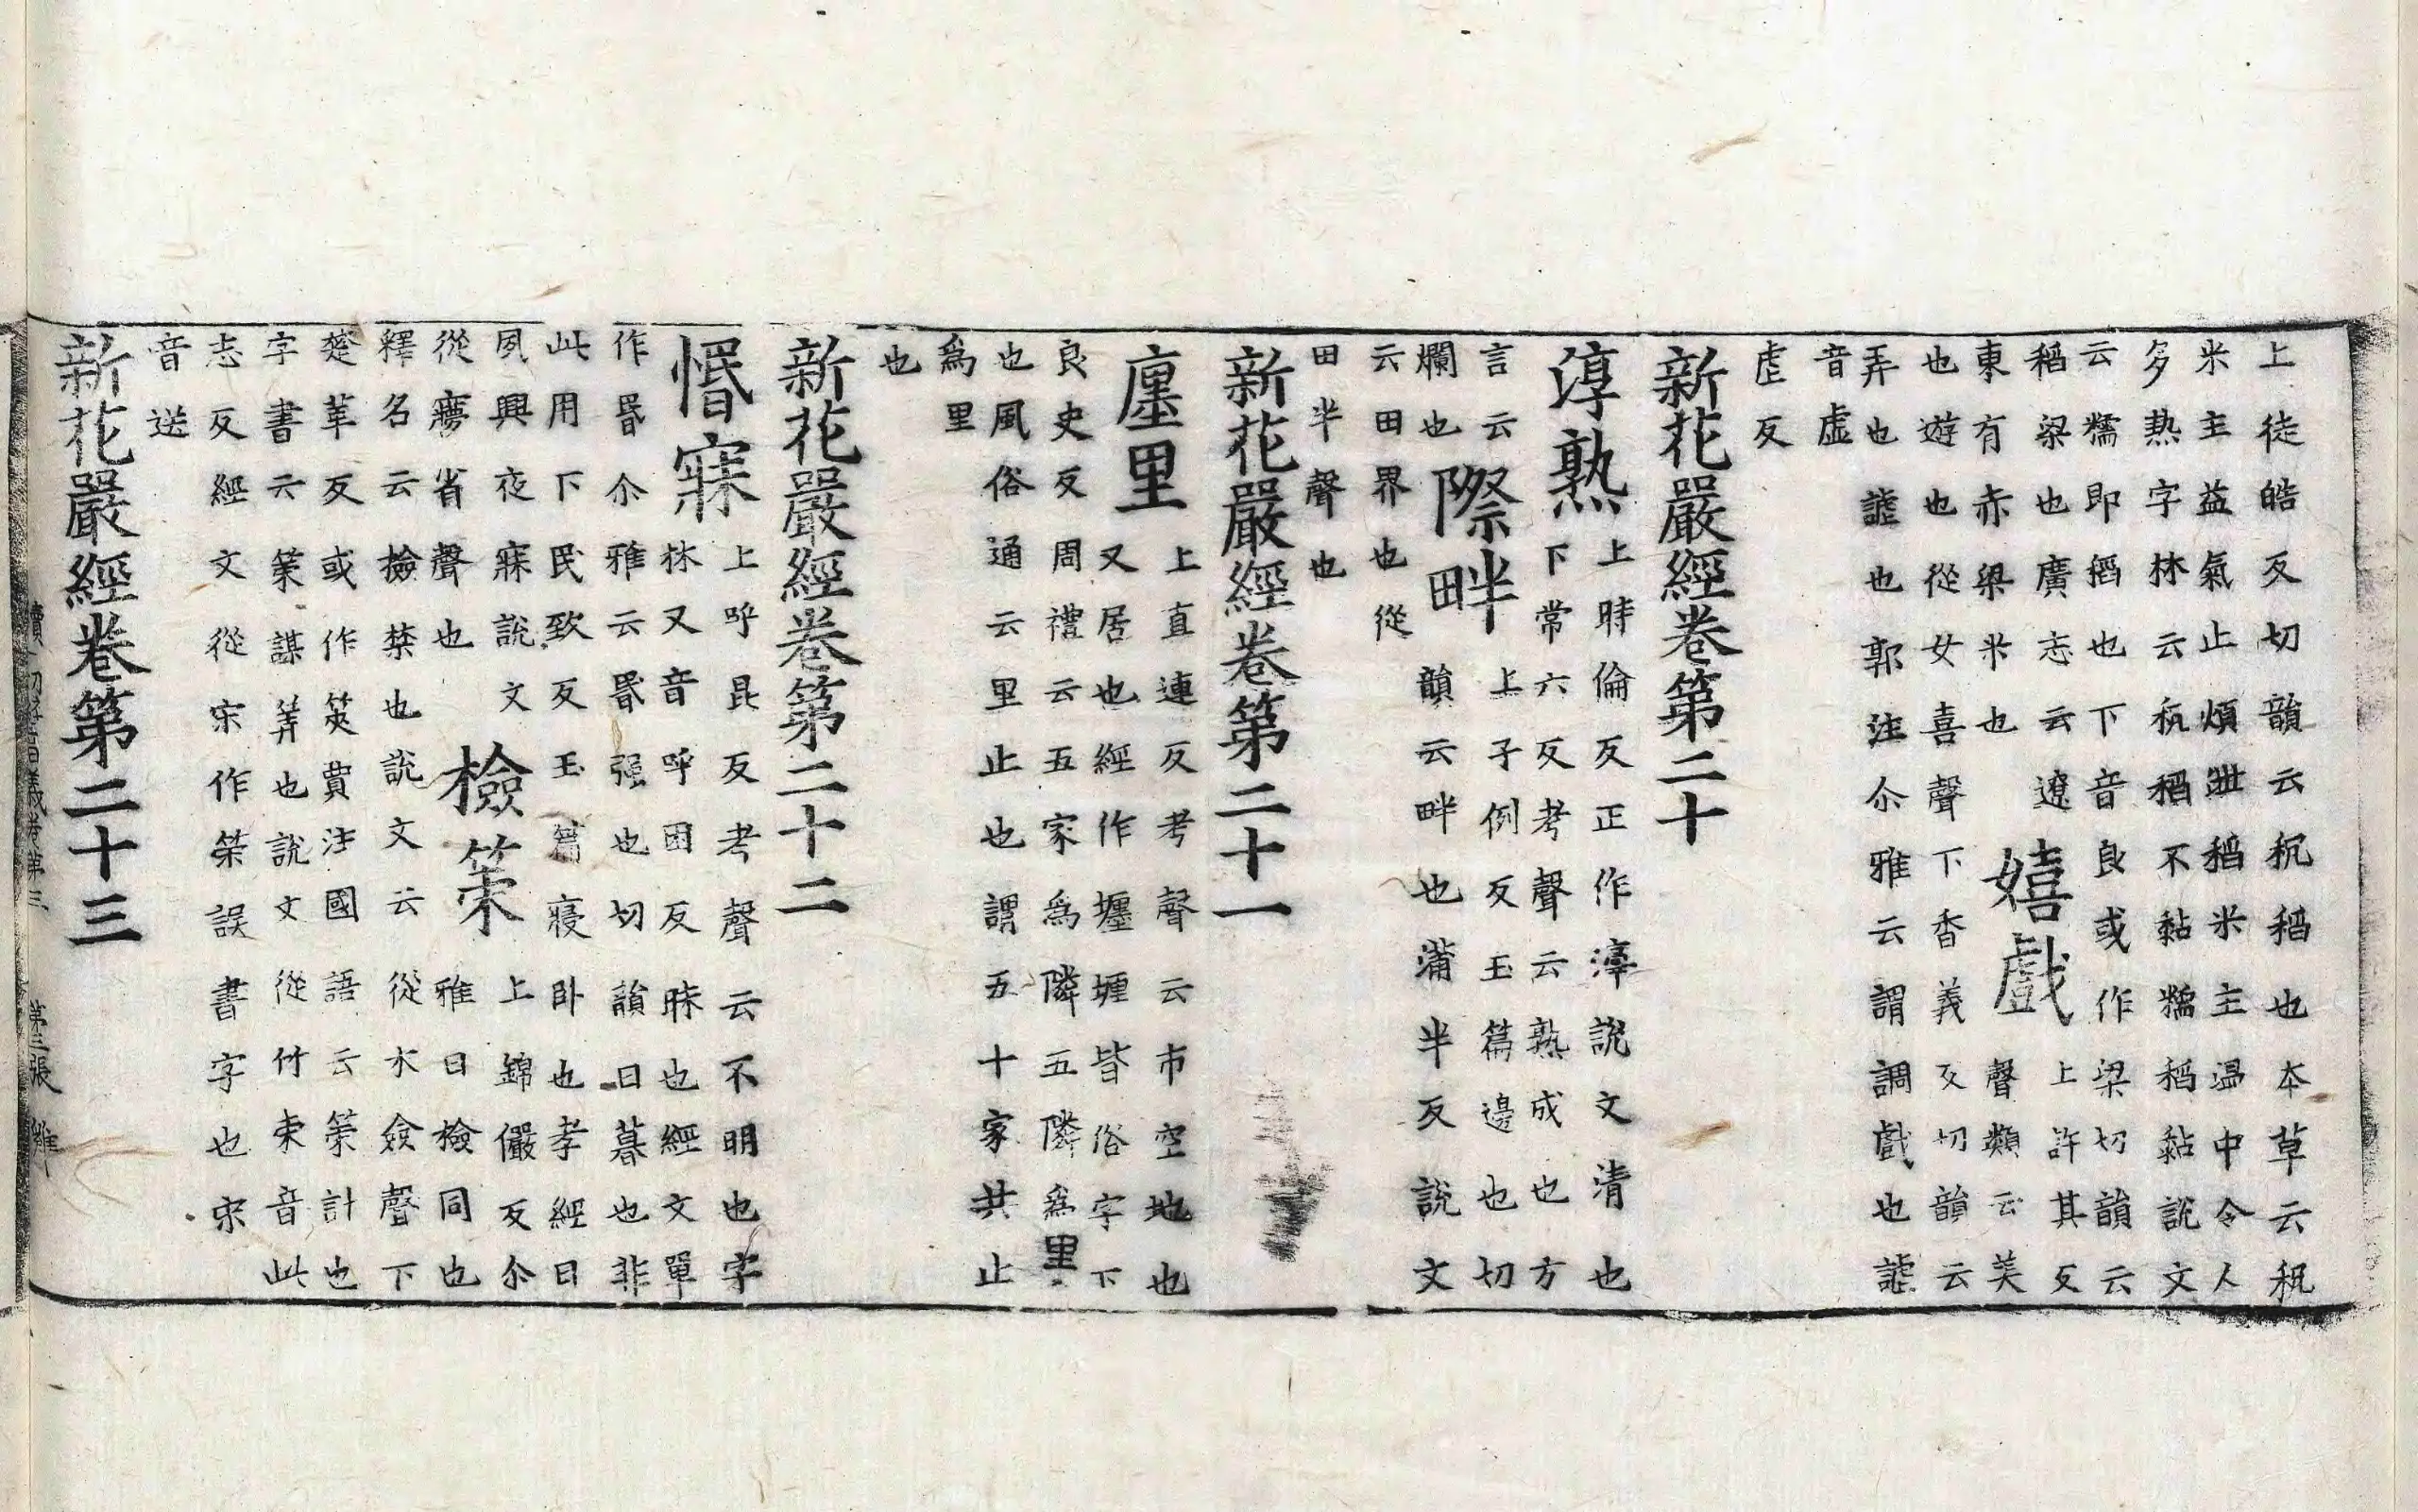 上徒皓反切韻云秔稻也本草云秔
米主益氣止煩泄稻米主溫中令人
多熱字林云秔稻不黏糯稻黏說文
云糯即稻也下音良或作梁切韻云
稻梁也廣志云遼
東有赤梁米也
嬉戲
上許其反
聲類云美
也遊也從女喜聲下香義反切韻云
弄也謔也郭注尒雅云謂調戲也謔
音虛
虐反
新花嚴經卷第二十
淳熟
上時倫反正作湻說文清也
下常六反考聲云熟成也方
言云
爛也
際畔
上子例反玉篇邊也切
韻云畔也蒲半反說文
云田界也從
田半聲也
新花嚴經卷第二十一
廛里
上直連反考聲云市空地也
又居也經作壥㕓皆俗字下
良史反周禮云五家為隣五隣為里
也風俗通云里止也謂五十家共止
為里
也
新花嚴經卷第二十二
惛寐
上呼昆反考聲云不明也字
林又音呼困反眛也經文單
作昬尒雅云昬强也切韻日暮也非
此用下民致反玉篇寢卧也孝經曰
夙興夜寐說文
從㝱省聲也
檢策
上錦儼反尒
雅曰檢同也
釋名云檢禁也說文云從木僉聲下
楚革反或作筴賈注國語云策計也
字書云策謀筭也說文從竹朿音此
志反經文從宋作䇲誤書字也宋
音送
新花嚴經卷第二十三
續一切經音義卷第三 第三張 雞